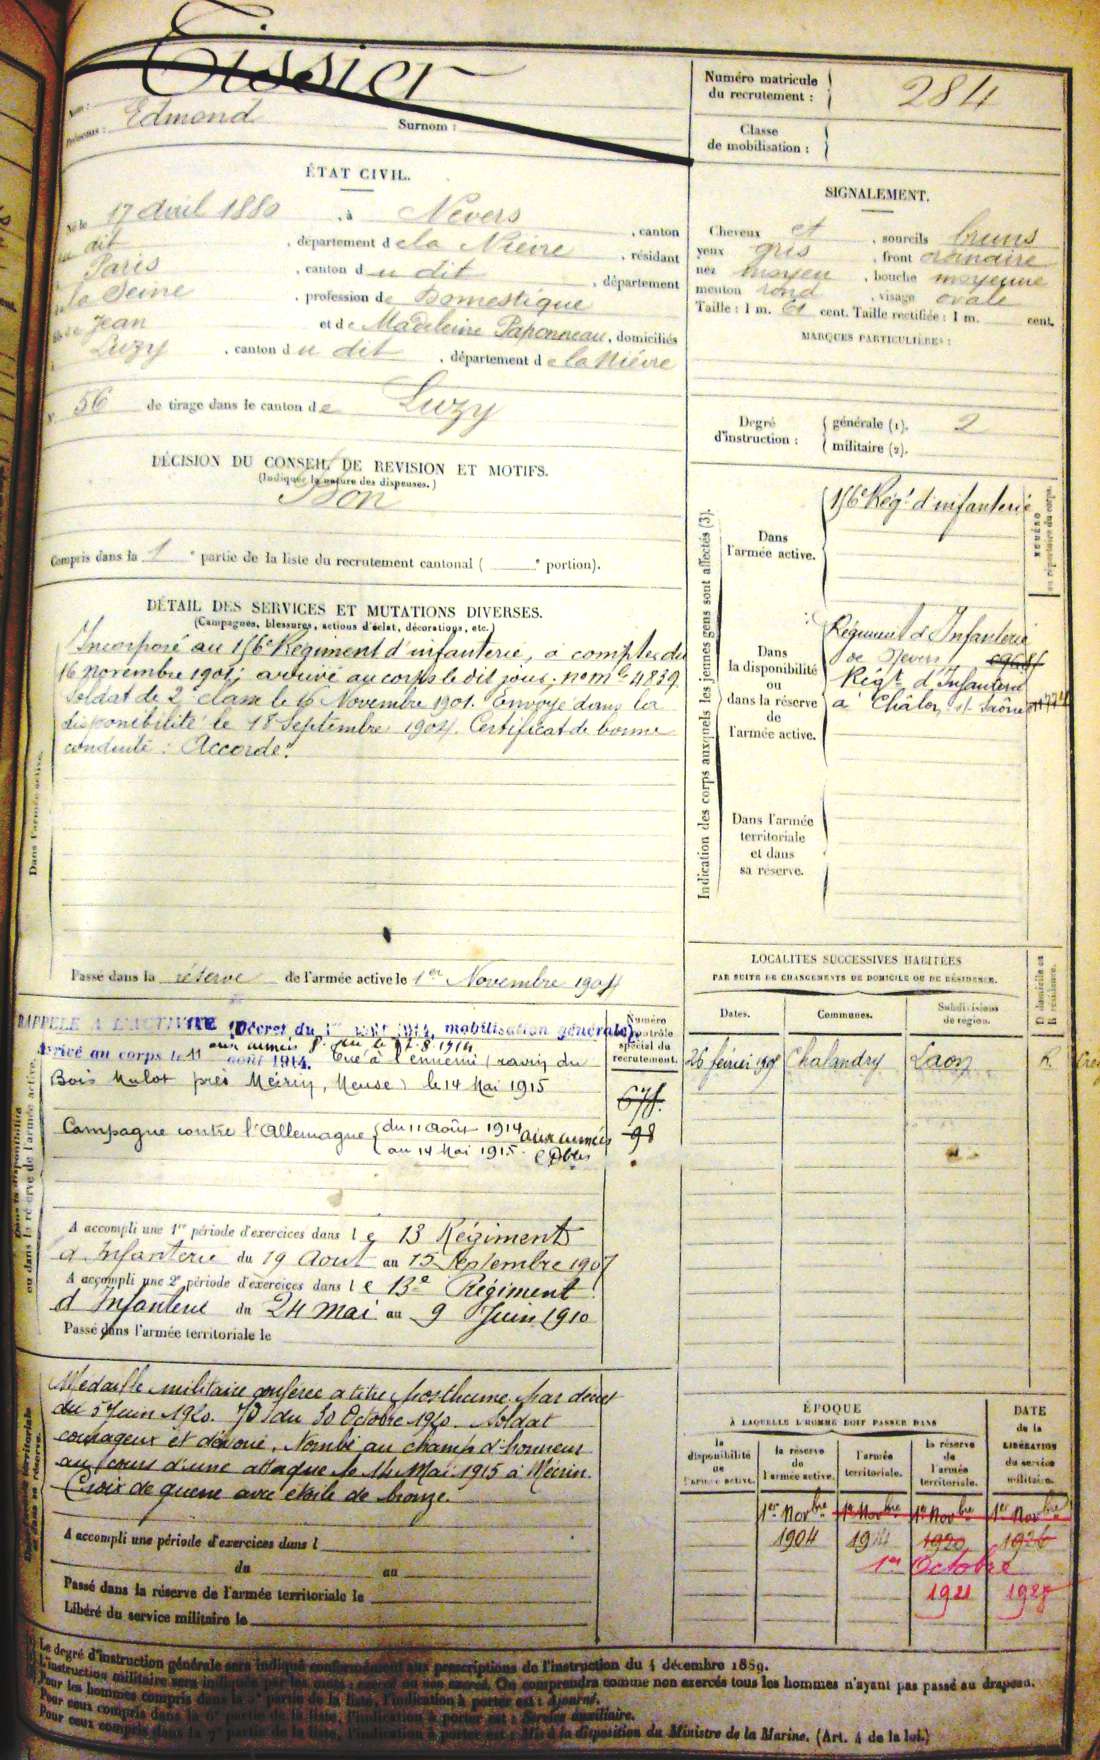 Tissier
Nom :
Prénoms : Edmond Surnom :
Numéro matricule du recrutement : 284
Classe de mobilisation :
ÉTAT CIVIL.
Né le 17 Avril 1880, à Nevers, canton
dit, département de la Nièvre, résidant
Paris, canton du dit, département
la Seine, profession de Domestique
fils de Jean et de Madeleine Paponneau, domiciliés
Luzy, canton du dit, département de la Nièvre
N° 56 de tirage dans le canton de Luzy
SIGNALEMENT.
Cheveux et, sourcils bruns
yeux gris, front ordinaire
nez moyen, bouche moyenne
menton rond, visage ovale
Taille : 1 m. 61 cent. Taille rectifiée : 1 m. cent.
MARQUES PARTICULIÈRES :
Degré d'instruction : générale (1). 2
militaire (2).
DÉCISION DU CONSEIL DE REVISION ET MOTIFS.
(Indiquer la nature des dispenses.)
Bon
Compris dans la 1e partie de la liste du recrutement cantonal ( e portion).
DÉTAIL DES SERVICES ET MUTATIONS DIVERSES.
(Campagnes, blessures, actions d'éclat, décorations, etc.)
Dans l'armée active.
Incorporé au 156e Régiment d'infanterie, à compter du
16 novembre 1901, arrivé au corps le dit jour, no mle 4839.
Soldat de 2e classe le 16 Novembre 1901. Envoyé dans la
disponibilité le 18 Septembre 1904. Certificat de bonne
conduite : Accordé.
Passé dans la réserve de l'armée active le 1er Novembre 1904
Indication des corps auxquels les jeunes gens sont affectés (3).
NUMÉRO au répertoire du corps.
Dans l'armée active.
156e Régt d'infanterie
Dans la disponibilité ou dans la réserve de l'armée active.
Régiment d'Infanterie
de Nevers
Régt d'Infanterie
à Châlon s/ Saône
Dans l'armée territoriale et dans sa réserve.
LOCALITÉS SUCCESSIVES HABITÉES
PAR SUITE DE CHANGEMENTS DE DOMICILE OU DE RÉSIDENCE.
Dates. Communes. Subdivisions de région. D domicile ou R résidence.
Chalandry Laon R.
Dans la disponibilité ou dans la réserve de l'armée active.
Numéro au contrôle spécial du recrutement.
RAPPELÉ A L'ACTIVITÉ (Décret du 1er août 1914, mobilisation générale).
Arrivé au corps le 11 août 1914. Tué à l'ennemi (ravin du
Bois Mulot près Mécrin, Meuse) le 14 Mai 1915
98
Campagne contre l'Allemagne du 11 août 1914 aux armées
au 14 Mai 1915.
A accompli une 1re période d'exercices dans le 13 Régiment
d'Infanterie du 19 Août au 15 Septembre 1907
A accompli une 2e période d'exercices dans le 13e Régiment
d'Infanterie du 24 Mai au 9 Juin 1910
Passé dans l'armée territoriale le
Médaille militaire conférée à titre posthume par décret
du 5 Juin 1920. JO du 30 Octobre 1920. Soldat
courageux et dévoué. Tombé au champ d'honneur
au cours d'une attaque le 14 Mai 1915 à Mécrin.
Croix de guerre avec étoile de bronze.
A accompli une période d'exercices dans l
du au
Passé dans la réserve de l'armée territoriale le
Libéré du service militaire le
ÉPOQUE
À LAQUELLE L'HOMME DOIT PASSER DANS
DATE de la LIBÉRATION du service militaire.
la disponibilité de l'armée active. la réserve de l'armée active. l'armée territoriale. la réserve de l'armée territoriale.
1er Novbre 1er Novbre 1er Novbre 1er Novbre
1904 1914 1920 1926
1er Octobre
1921 1928
Le degré d'instruction générale sera indiqué conformément aux prescriptions de l'instruction du 4 décembre 1889.
L'instruction militaire sera indiquée par les mots : exercé ou non exercé. On comprendra comme non exercés tous les hommes n'ayant pas passé au drapeau.
Pour les hommes compris dans la 5e partie de la liste, l'indication à porter est : Ajourné.
Pour ceux compris dans la 6e partie de la liste, l'indication à porter est : Service auxiliaire.
Pour ceux compris dans la 7e partie de la liste, l'indication à porter est : Mis à la disposition du Ministre de la Marine. (Art. 4 de la loi.)